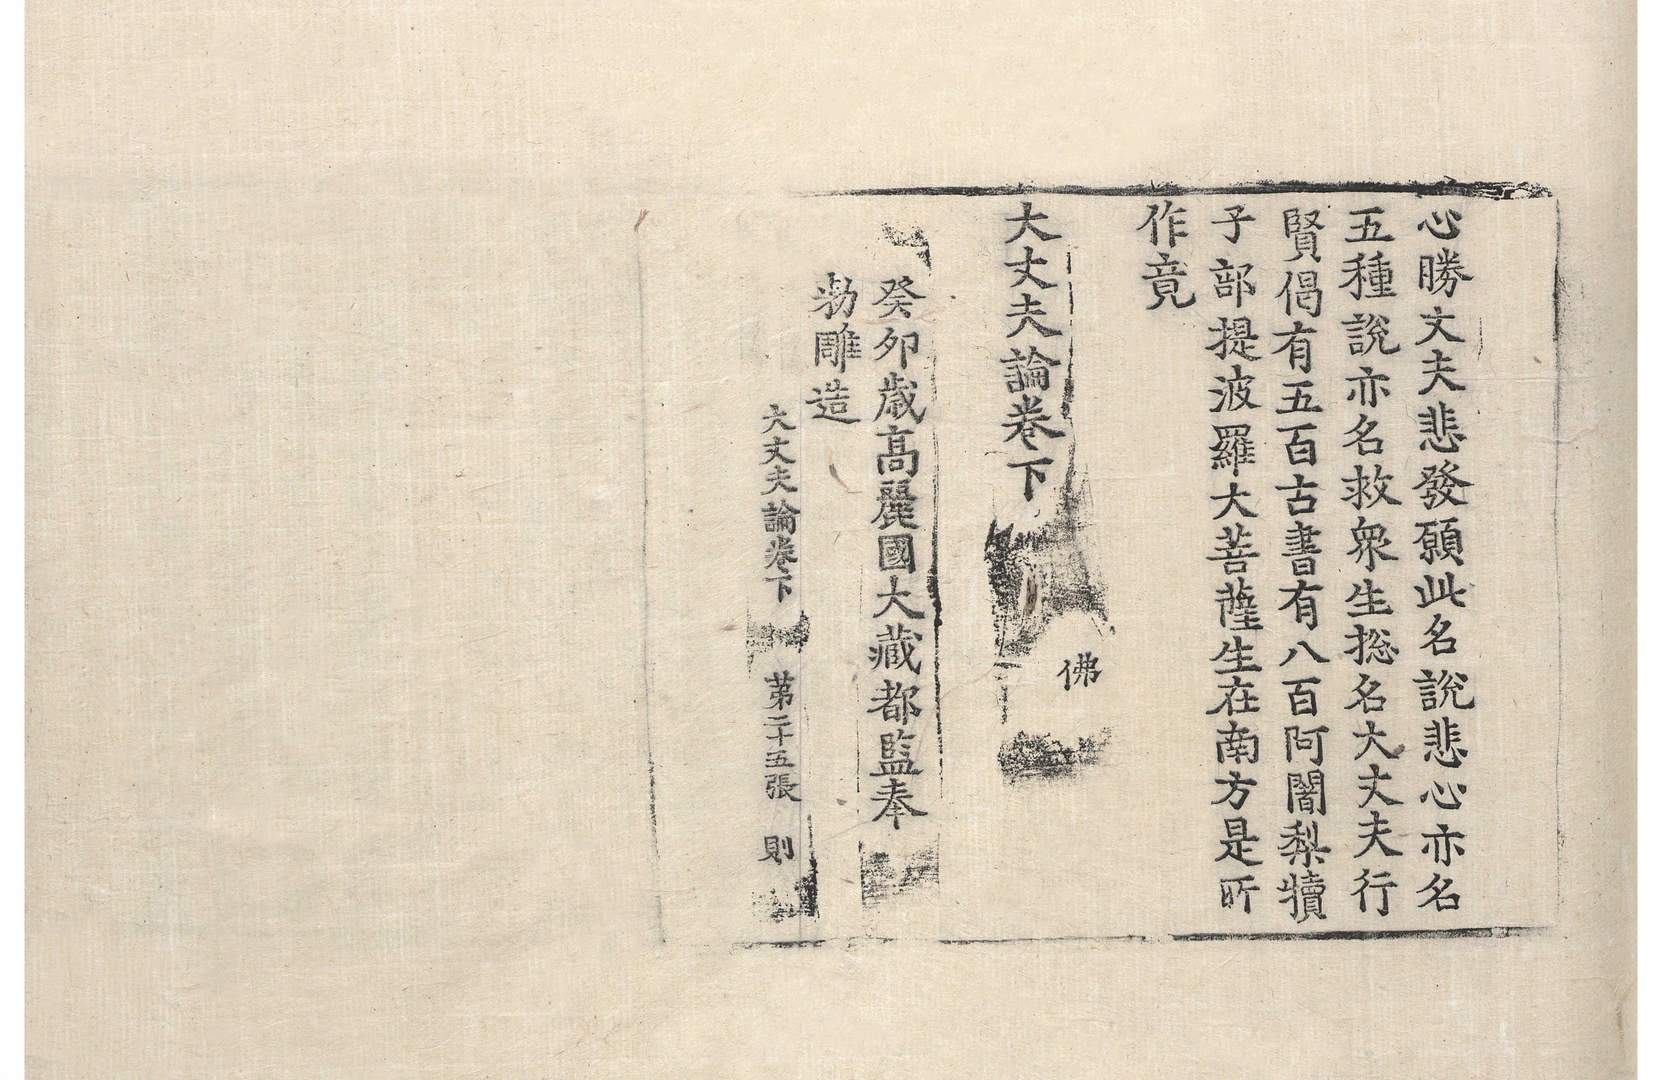 心勝丈夫悲發願此名說悲心亦名
五種說亦名救衆生揔名大丈夫行
賢偈有五百古書有八百阿闍梨犢
子部提波羅大菩薩生在南方是所
作竟
佛
大丈夫論卷下
癸卯歲高麗國大藏都監奉
勑雕造
大丈夫論卷下 第二十五張 則